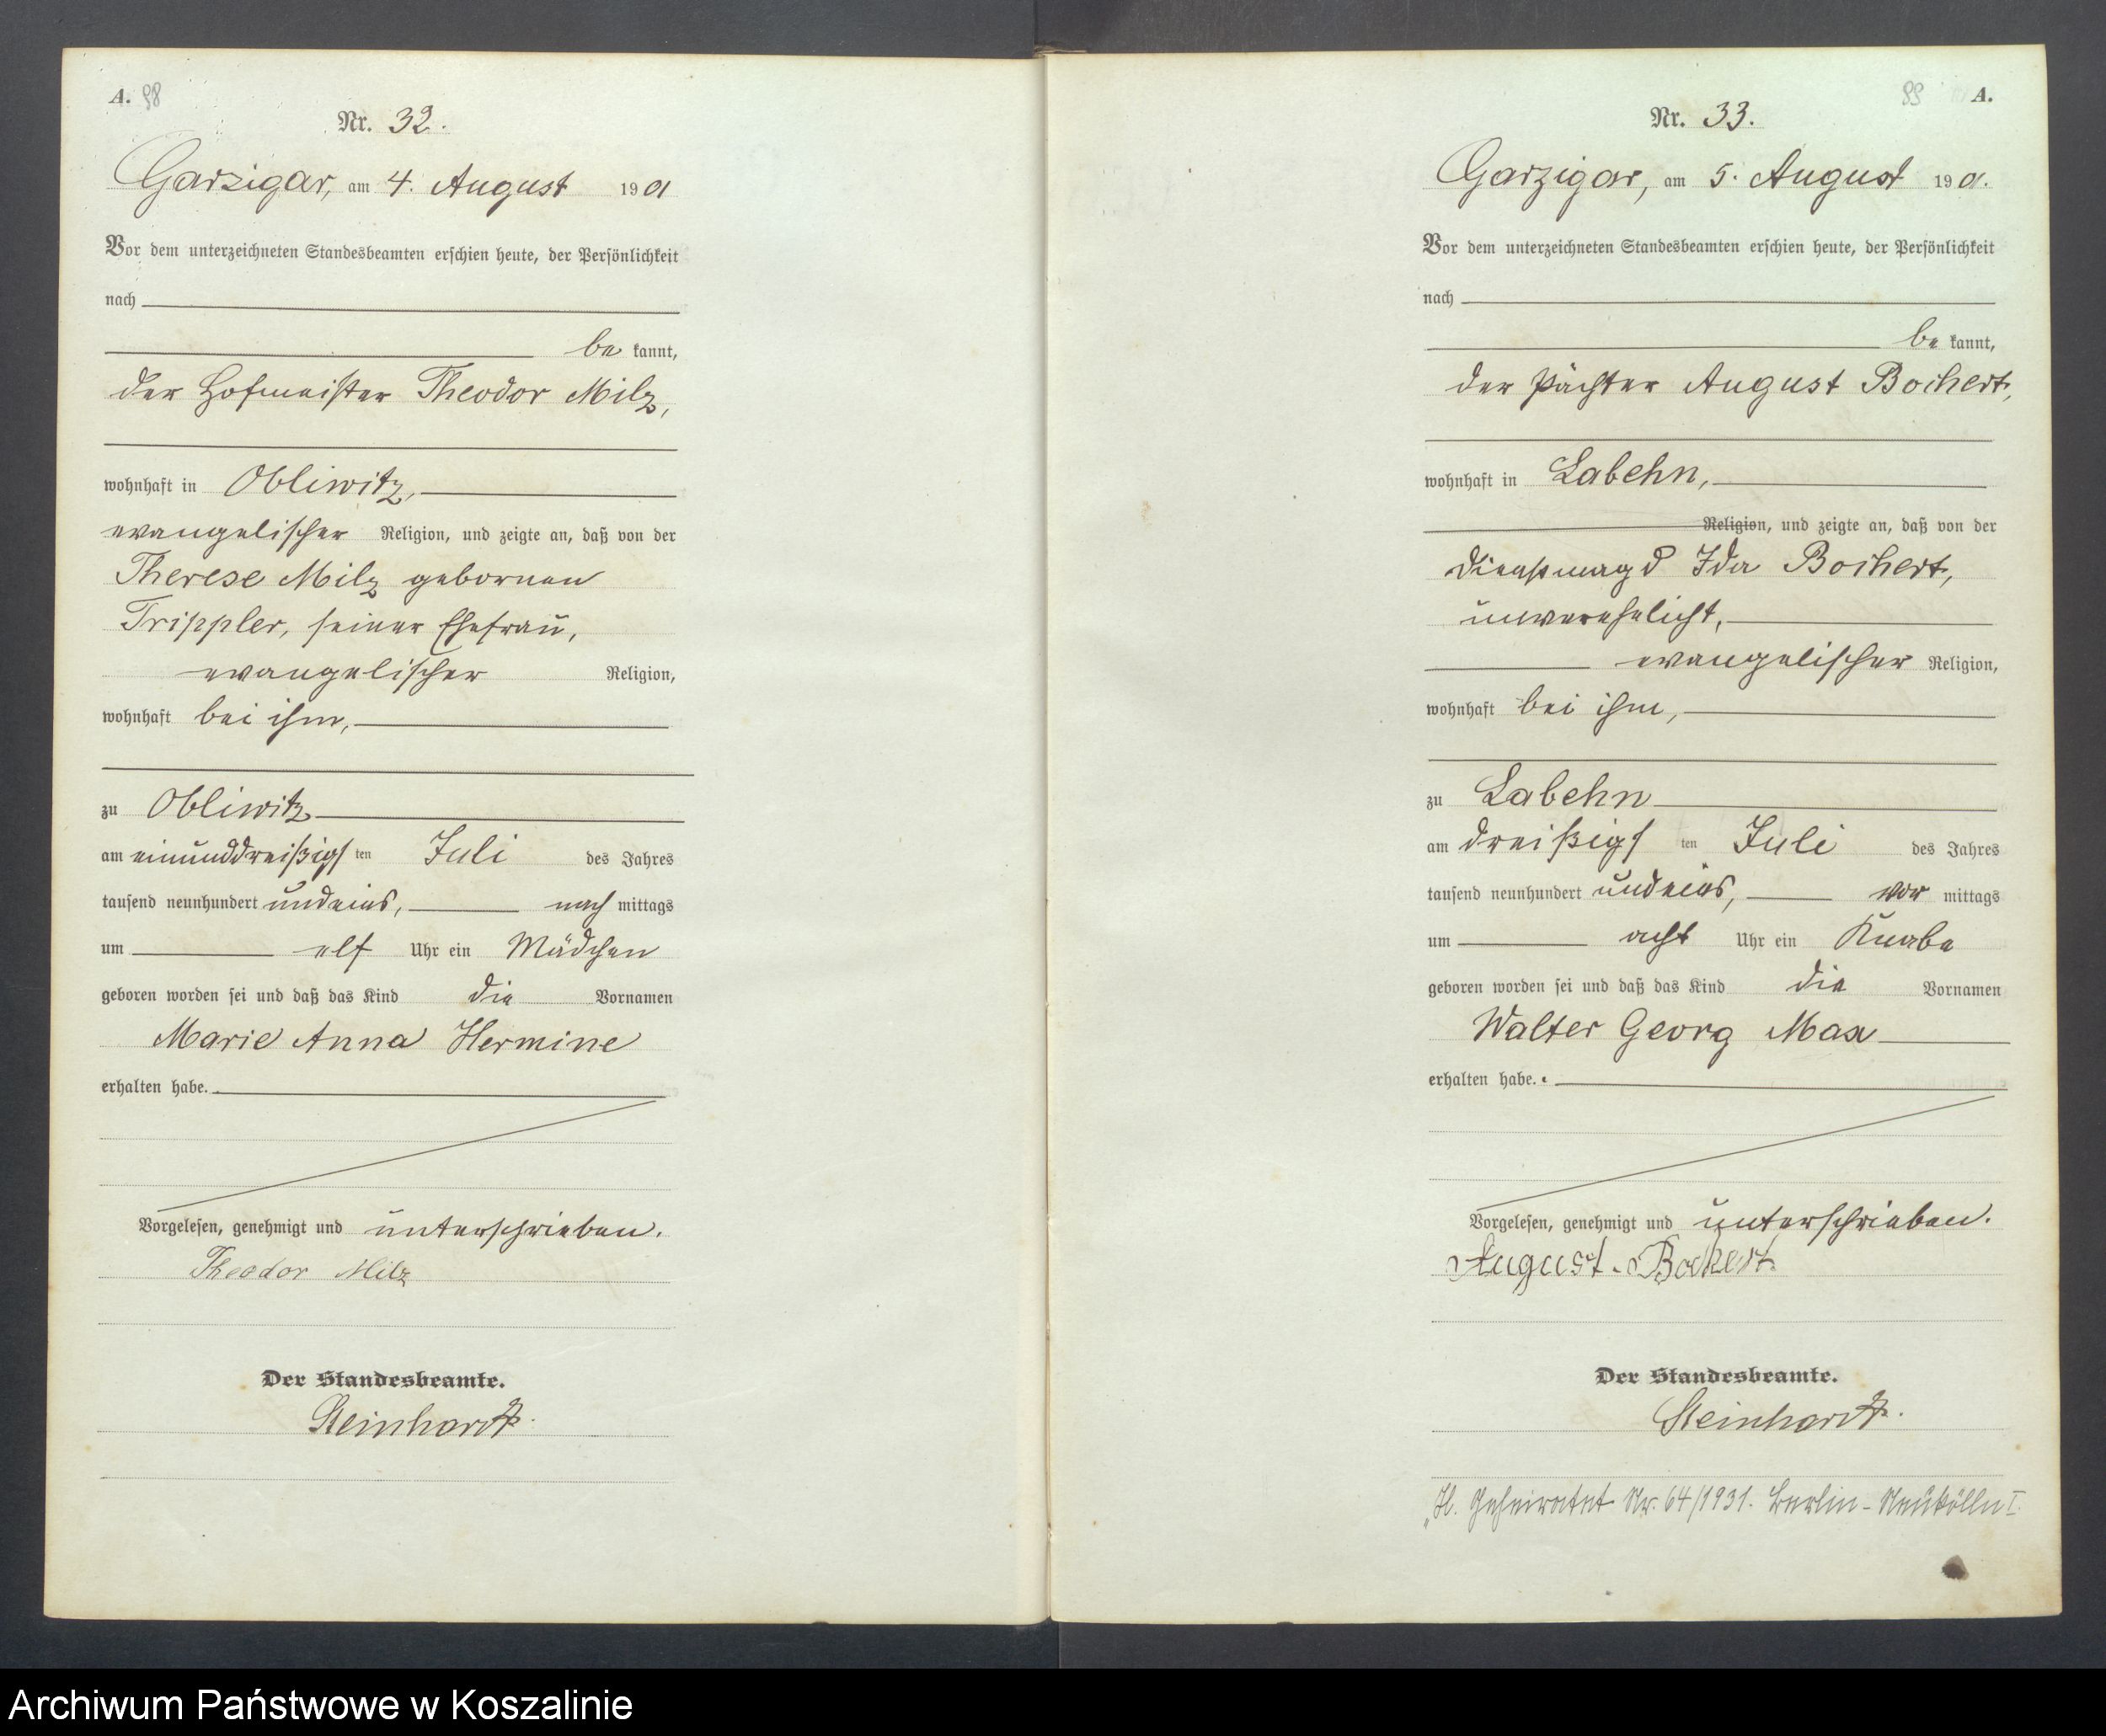 A. 98
Nr. 32.
Garzigar, am 4. August 1901
Vor dem unterzeichneten Standesbeamten erschien heute, der Persönlichkeit
nach
be kannt,
der Hofmeister Theodor Milz,
wohnhaft in Obliwitz,
evangelischer Religion, und zeigte an, daß von der
Therese Milz gebornen
Trippler, seiner Ehefrau,
evangelischer Religion,
wohnhaft bei ihm,
zu Obliwitz
am einunddreißigs ten Juli des Jahres
tausend neunhundert undeins, nach mittags
um elf Uhr ein Mädchen
geboren worden sei und daß das Kind die Vornamen
Marie Anna Hermine
erhalten habe.
Vorgelesen, genehmigt und unterschrieben.
Theodor Milz
Der Standesbeamte.
Steinhardt.
99 A.
Nr. 33.
Garzigar, am 5. August 1901.
Vor dem unterzeichneten Standesbeamten erschien heute, der Persönlichkeit
nach
be kannt,
der Pächter August Bochert,
wohnhaft in Labehn,
Religion, und zeigte an, daß von der
Dienstmagd Ida Bochert,
unverehelicht,
evangelischer Religion,
wohnhaft bei ihm,
zu Labehn
am dreißigs ten Juli des Jahres
tausend neunhundert undeins, vor mittags
um acht Uhr ein Knabe
geboren worden sei und daß das Kind die Vornamen
Walter Georg Max
erhalten habe.
Vorgelesen, genehmigt und unterschrieben.
August Bochert.
Der Standesbeamte.
Steinhardt.
Geheiratet Nr. 64/1931. Berlin-Neukölln I.
Archiwum Państwowe w Koszalinie